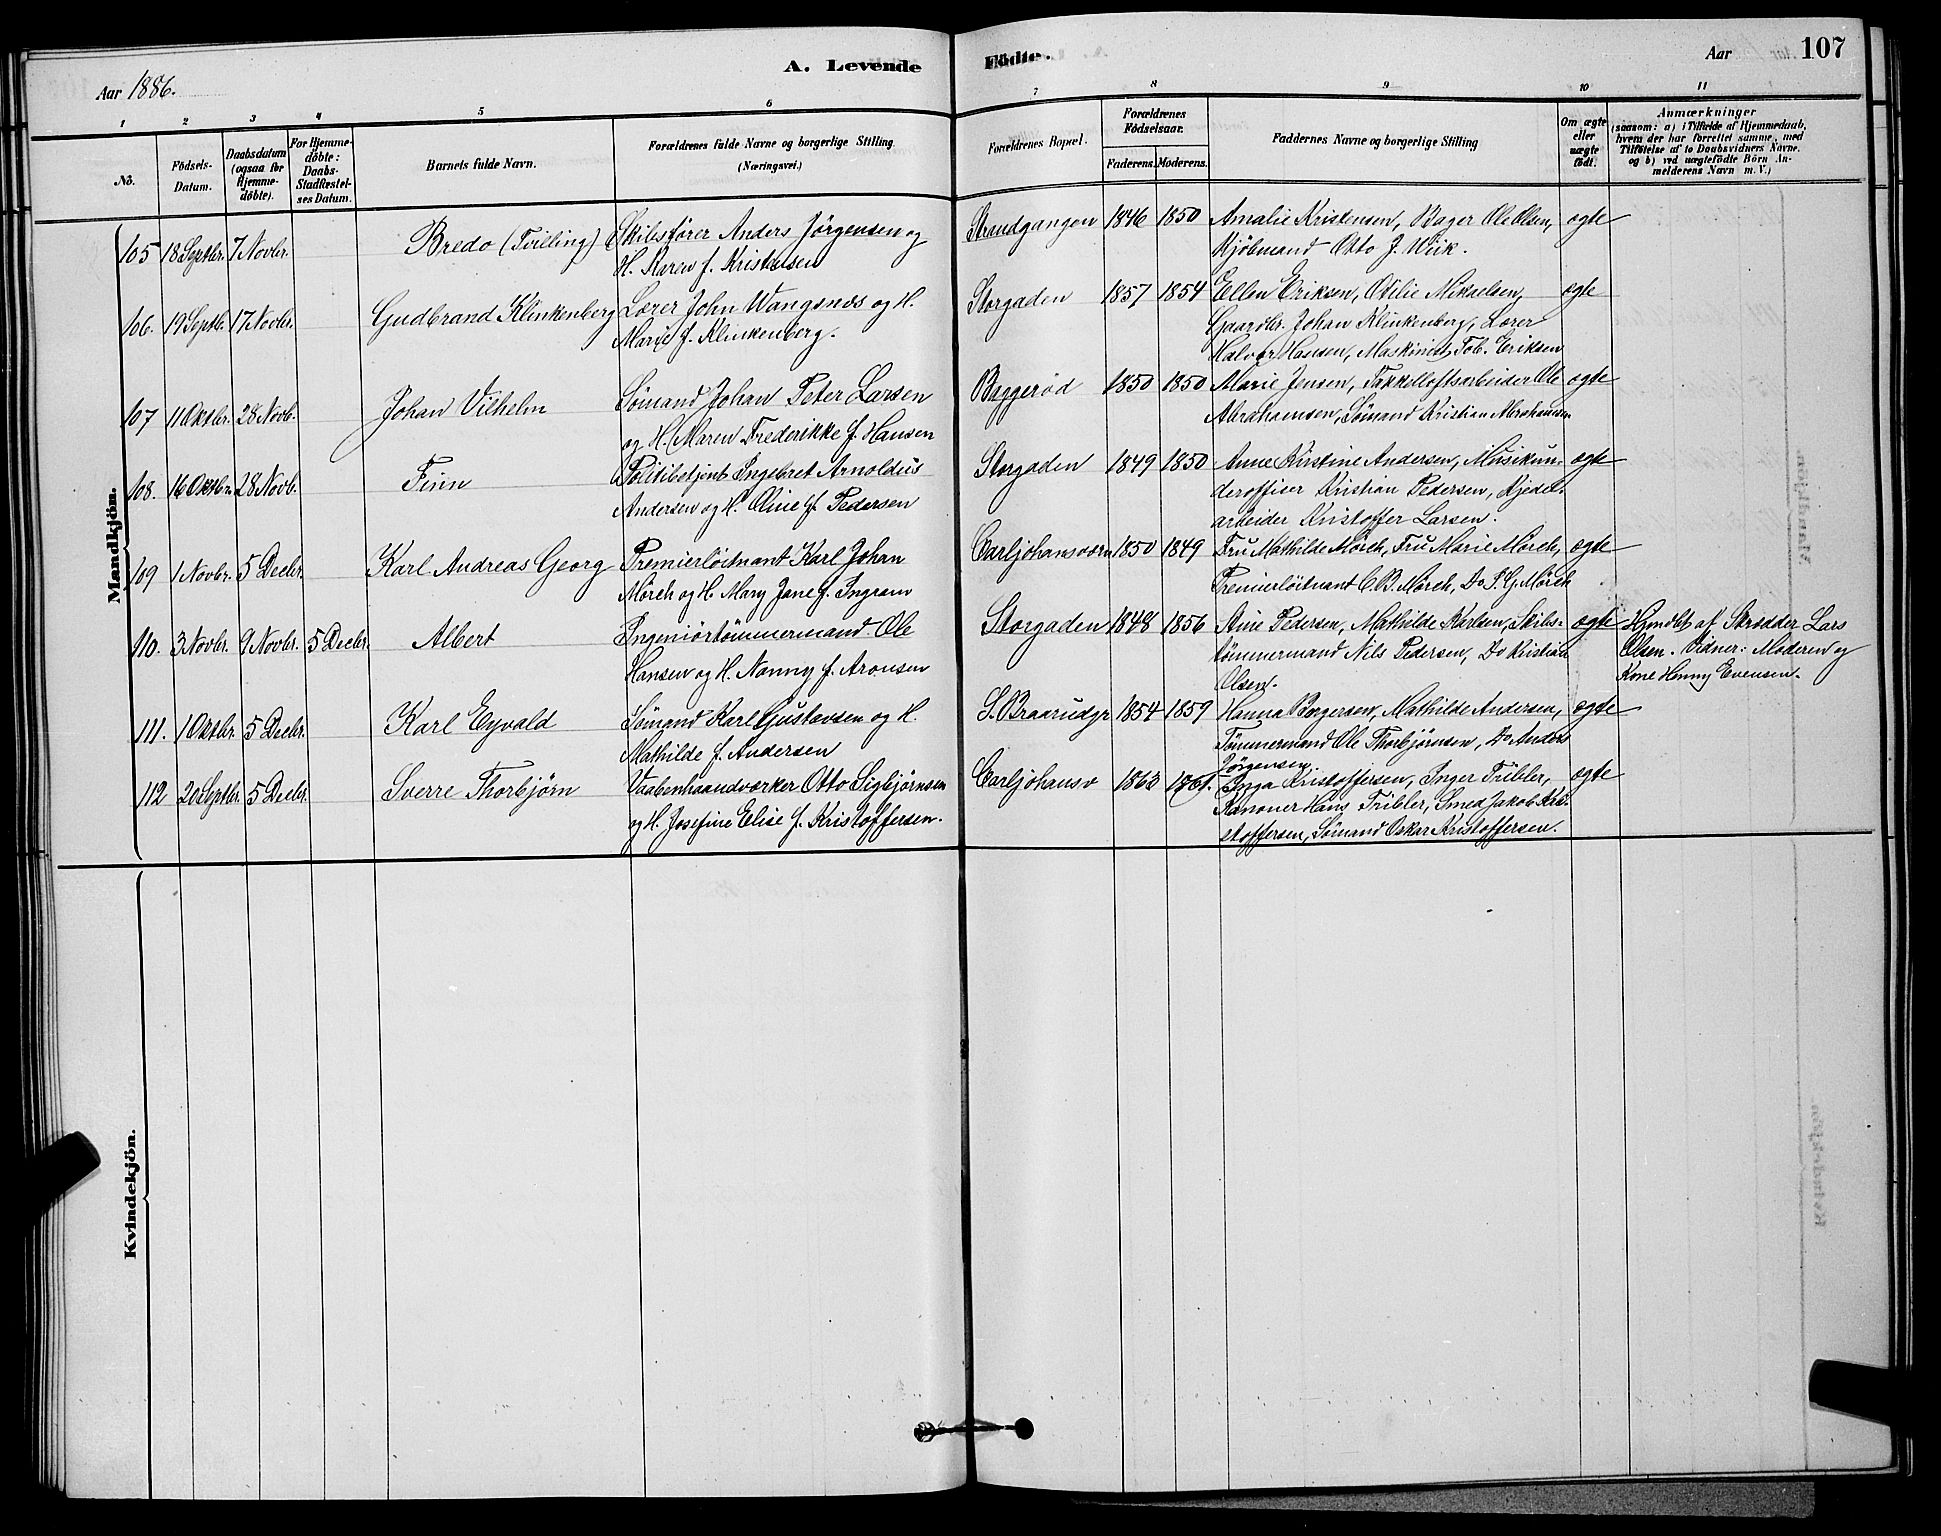 A. Levende
Aar 1886.
1 2 3 4 5 6
No.
Födsels-Datum.
Daabsdatum (ogsaa for Hjemme-døbte).
For Hjemme-døbte: Daabs-Stadfæstelses Datum.
Barnets fulde Navn.
Forældrenes fulde Navne og borgerlige Stilling (Næringsvei.)
Mandkjön.
105 18 Septbr. 7 Novbr. Bredo (Tvilling) Skibsfører Anders Jörgensen og
H. Karen f. Kristensen
106. 19 Septb. 17 Novbr. Gudbrand Klinkenberg Lærer John Wangsnæs og H.
Marie f. Klinkenberg.
107 11 Oktbr. 28 Novb. Johan Vilhelm Sömand Johan Peter Larsen
og H. Maren Frederikke f. Hansen
108. 16 Oktbr. 28 Novb. Finn Politibetjent Ingebret Arnoldus
Andersen og H. Oline f. Pedersen
109 1 Novbr. 5 Decbr. Karl Andreas Georg Premierlöitnant Karl Johan
Mörch og H. Mary Jane f. Ingram
110. 3 Novbr. 9 Novbr. 5 Decbr. Albert Ingeniörtömmermand Ole
Hansen og H. Nanny f. Aronsen
111. 1 Oktbr. 5 Decbr. Karl Eyvald Sömand Karl Gustavsen og H.
Mathilde f. Andersen
112 20 Septbr. 5 Decbr. Sverre Thorbjörn Vaabenhaandværker Otto Sigbjörnsen
og H. Josefine Elise f. Kristoffersen.
Kvindekjön.
Födte.
Aar
107
7 8 9 10 11
Forældrenes Bopæl.
Forældrenes Födselsaar.
Faderens. Moderens.
Faddernes Navne og borgerlige Stilling
Om ægte eller uægte födt.
Anmærkninger
(saasom: a) i Tilfælde af Hjemmedaab,
hvem der har forrettet samme, med
Tilföielse af to Daabsvidners Navne.
og b) ved uægtefödte Börn An-
melderens Navn m. V.)
Strandgangen 1846 1850 Amalie Kristensen, Bager Ole Olsen, ægte
Kjöbmand Otto J. Wiik.
Storgaden 1857 1854 Ellen Eriksen, Otilie Mikselsen, ægte
Gaardbr. Johan Klinkenberg, Lærer
Halvor Hansen, Maskinist Tob. Eriksen
Baggeröd 1850 1850 Marie Jensen, Takkelloftsarbeider Ole ægte
Abrahamsen, Sömand Kristian Abrahamsen
Storgaden 1849 1850 Anne Kirstine Andersen, Musikun- ægte
deroffiser Kristian Pedersen, Kjedel-
arbeider Kristoffer Larsen.
Carljohansværn 1850 1849 Fru Mathilde Mörch, Fru Marie Mörch, ægte
Premierlöitnant C. B. Mörch, Do P. G. Mörch
Storgaden 1848 1856 Stine Pedersen, Mathilde Karlsen, Skibs- ægte Hjmdbt af Skrædder Lars
tömmermand Nils Pedersen, Do Kristian Olsen. Vidner: Moderen og
Olsen. Kone Henny Evensen.
S. Braarudgr 1854 1859 Hanna Borgersen, Mathilde Andersen, ægte
Tömmermand Ole Thorbjörnsen, Do Anders
Jörgensen
Carljohansv 1863 1861. Inga Kristoffersen, Inger Tribler, ægte
Kanoner Hans Tribler, Smed Jakob Kri-
stoffersen, Sömand Oskar Kristoffersen.